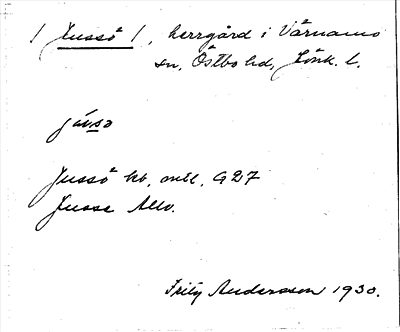 / Jussö /, herrgård i Värnamo
sn, Östbo hd, Jönk. l.
Jussö kb, , G 27
Jusse Allv.
Fritz Andersson 1930.